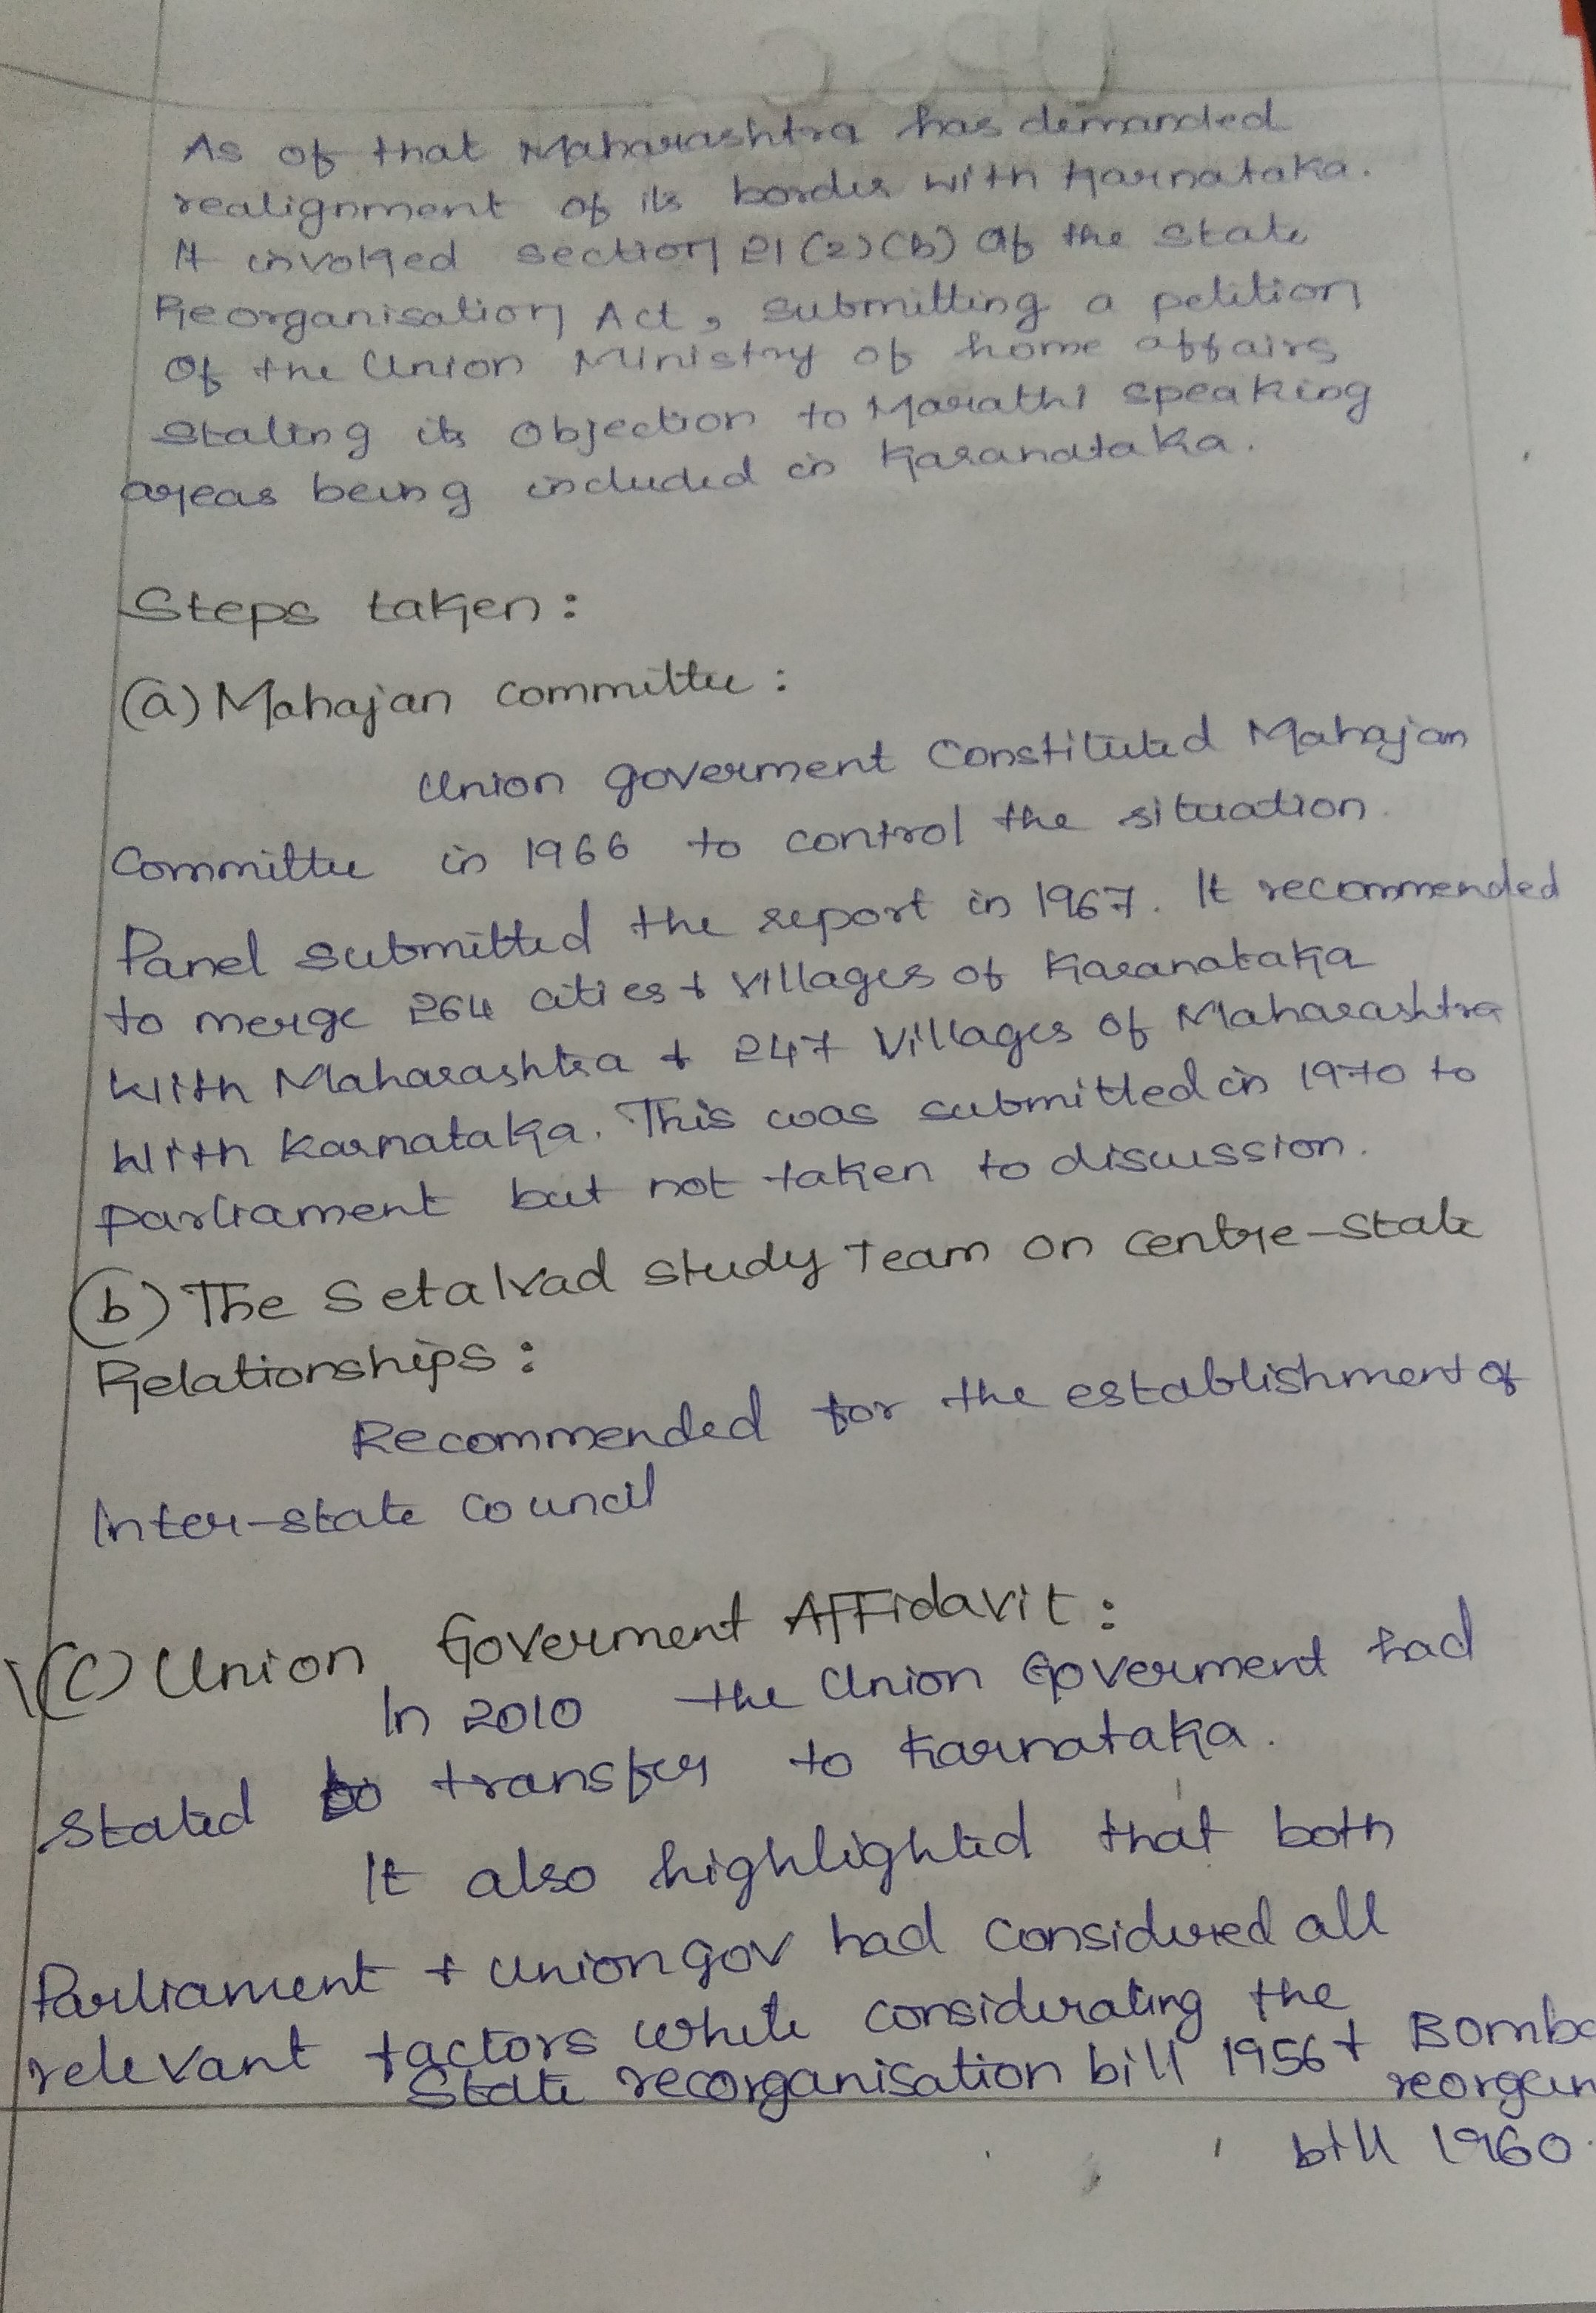 As of that Maharashtra has demanded
realignment of its border with Karnataka.
It invoked section 21(2)(b) of the State
Reorganisation Act, submitting a petition
of the Union Ministry of home affairs
Stating its objection to Marathi speaking
areas being included in Karanataka.
Steps taken:
(a) Mahajan committee:
Union goverment Constituted Mahajan
Committee in 1966 to control the situation.
Panel submitted the report in 1967. It recommended
to merge 264 cities + villages of Karanataka
with Maharashtra + 247 villages of Maharashtra
with Karnataka. This was submitted in 1970 to
parliament but not taken to discussion.
(b) The Setalvad study Team on centre-state
Relationships:
Recommended for the establishment of
Inter-state council
(c) Union Goverment Affidavit:
In 2010 the Union Goverment had
stated to transfer to Karnataka.
It also highlighted that both
Parliament + union gov had considered all
relevant factors while considerating the
State reorganisation bill 1956 + Bomba
reorgan
bill 1960.